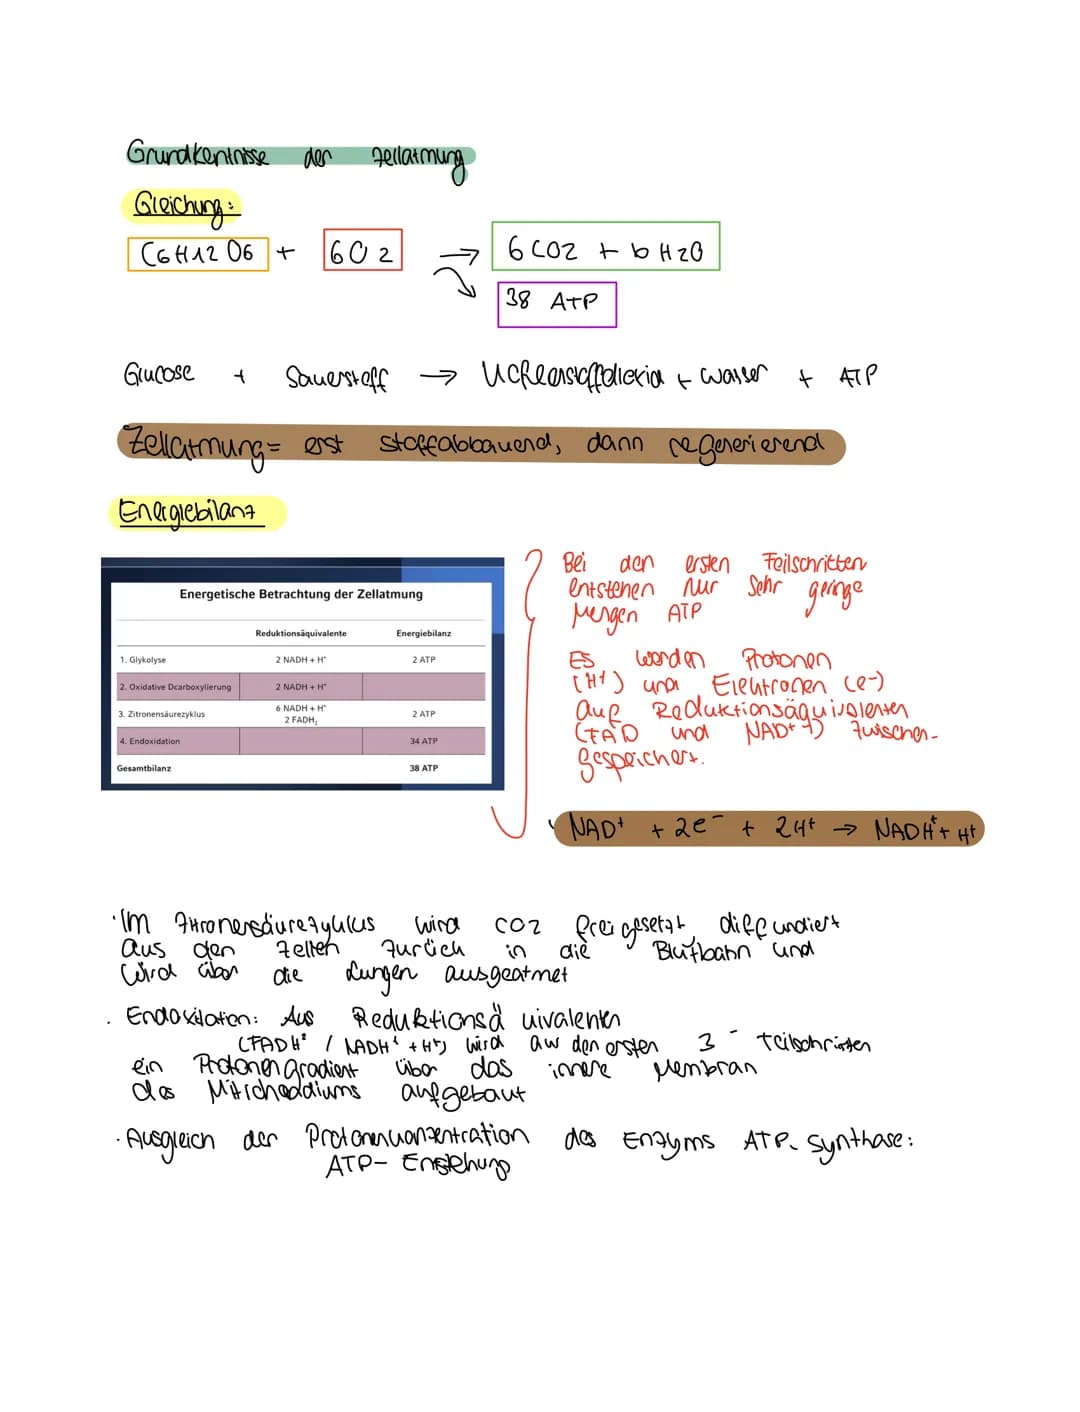 Grundkentnisse der Zellatmung
Gleichung:
C6H12O6 + 6O2 → 6CO2 + 6H2O
38 ATP
Glucose + Sauerstoff → + Wasser + ATP
Zellatmung = erst stoffabbauend, dann regenerierend
Energiebilanz
Energetische Betrachtung der Zellatmung
Reduktionsäquivalente Energiebilanz
1. Glykolyse 2 NADH + H⁺ 2 ATP
2. Oxidative Dcarboxylierung 2 NADH + H⁺
3. Zitronensäurezyklus 6 NADH + H⁺ 2 ATP
2 FADH₂
4. Endoxidation 34 ATP
Gesamtbilanz 38 ATP
Bei den ersten Teilschritten
entstehen nur sehr geringe
Mengen ATP
Es werden Protonen
(H⁺) und Elektronen (e-)
auf Reduktionsäquivalenten
(FAD und NAD⁺) zwischen-
gespeichert.
NAD⁺ + 2e⁻ + 2H⁺ → NADH⁺ + H⁺
· Im wird CO2 freigesetzt, diffundiert
aus den Zellen zurück in die Blutbahn und
wird über die Lungen ausgeatmet
· Aus
(FADH² / NADH⁺ + H⁺) wird aus den ersten 3 - Teilschritten
ein Protonengradient über das innere Membran
des aufgebaut
· Ausgleich der Protonenkonzentration des Enzyms ATP-Synthase:
ATP-